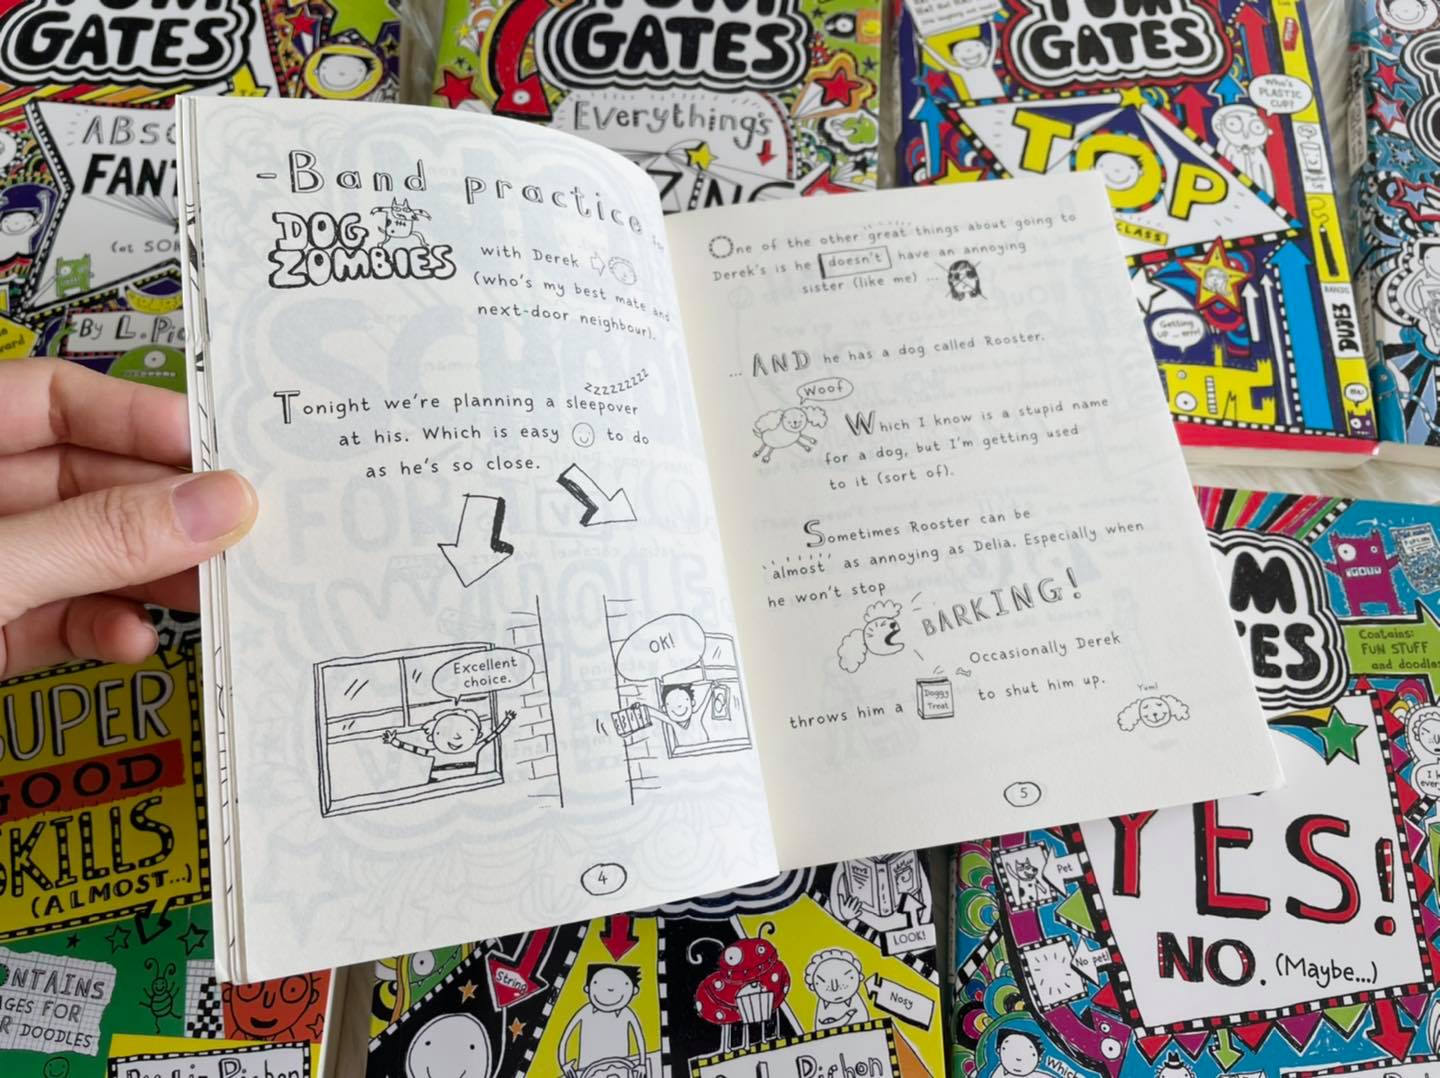 TOM
GATES
ABSO
FANT
(at SOM
By L. Pic
GATES
Everything's
ZING
TOM
GATES
Who's
PLASTIC
CUP?
Plastic
Cup
TOP
CLASS
Getting
UP ... errr!
DUDES
Me!
- Band practice for
DOG
ZOMBIES
with Derek
(who's my best mate and
next-door neighbour).
zzzzzzzzz
Tonight we're planning a sleepover
at his. Which is easy to do
as he's so close.
Excellent
choice.
OK!
4
One of the other great things about going to
Derek's is he doesn't have an annoying
sister (like me) ...
... AND he has a dog called Rooster.
Woof
Which I know is a stupid name
for a dog, but I'm getting used
to it (sort of).
Sometimes Rooster can be
'almost' as annoying as Delia. Especially when
he won't stop
BARKING!
Occasionally Derek
throws him a Doggy Treat to shut him up.
Yum!
5
SUPER
GOOD
SKILLS
(ALMOST...)
ONTAINS
AGES FOR
R DOODLES
By Liz Pichon
String
LOOK!
Nosy
L. Pichon
M
TES
Contains:
FUN STUFF
and doodles
YES!
NO. (Maybe...)
Pet
No pet!
Which